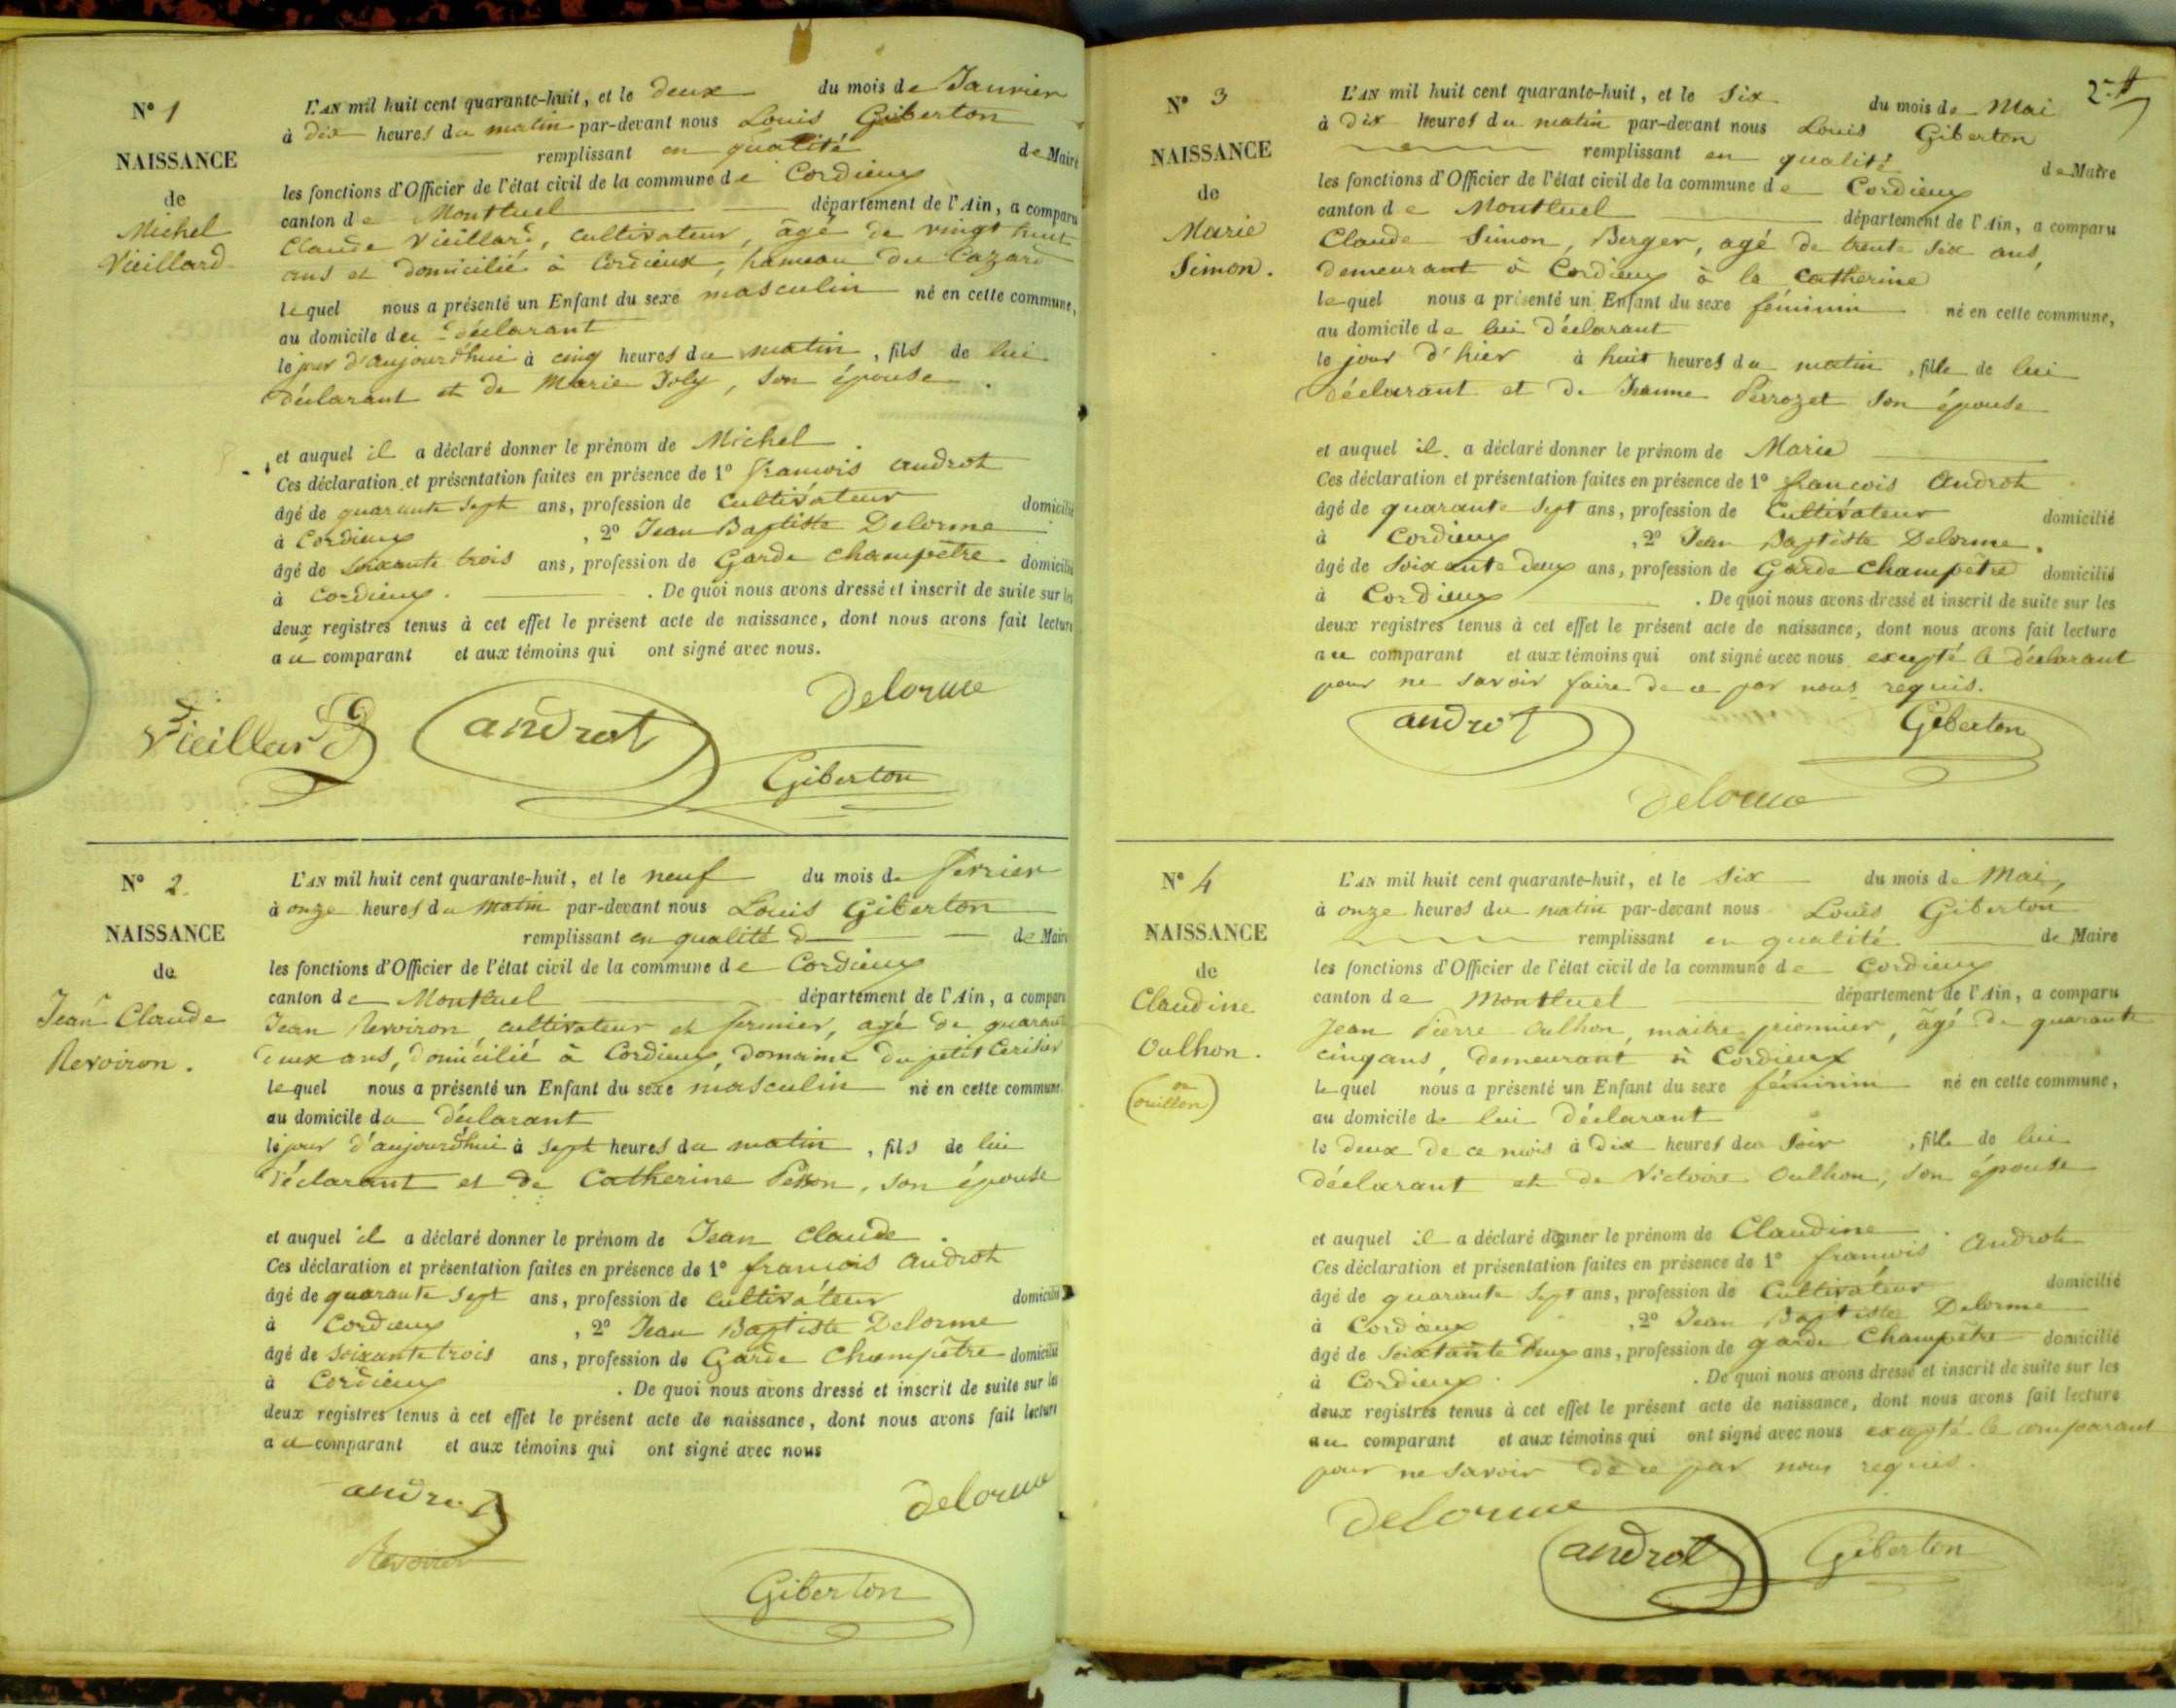 N° 1
NAISSANCE
de
Michel
Vieillard
L'AN mil huit cent quarante-huit, et le deux du mois de Janvier
à dix heures du matin par-devant nous Louis Giberton
remplissant en qualité de Maire
les fonctions d'Officier de l'état civil de la commune de Cordieux
canton de Montluel département de l'Ain, a comparu
Claude Vieillard, cultivateur, âgé de vingt huit
ans et domicilié à Cordieux, hameau du Cazard
lequel nous a présenté un Enfant du sexe masculin né en cette commune,
au domicile du déclarant
le jour d'aujourd'hui à cinq heures du matin, fils de lui
déclarant et de Marie Joly, son épouse.
et auquel il a déclaré donner le prénom de Michel.
Ces déclaration et présentation faites en présence de 1° francois androt
âgé de quarante sept ans, profession de cultivateur domicilié
à Cordieux, 2° Jean Baptiste Delorme
âgé de soixante trois ans, profession de Garde champêtre domicilié
à Cordieux. De quoi nous avons dressé et inscrit de suite sur les
deux registres tenus à cet effet le présent acte de naissance, dont nous avons fait lecture
au comparant et aux témoins qui ont signé avec nous.
Delorme
Vieillard androt
Giberton
N° 2
NAISSANCE
de
Jean Claude
Revoiron.
L'AN mil huit cent quarante-huit, et le neuf du mois de fevrier
à onze heures du matin par-devant nous Louis Giberton
remplissant en qualité d de Maire
les fonctions d'Officier de l'état civil de la commune de Cordieux
canton de Montluel département de l'Ain, a comparu
Jean Revoiron cultivateur et fermier, agé de quarante
deux ans, domicilié à Cordieux, domaine du petit Cerisier
lequel nous a présenté un Enfant du sexe masculin né en cette commune.
au domicile du déclarant
le jour d'aujourd'hui à sept heures du matin, fils de lui
déclarant et de Catherine, son épouse
et auquel il a déclaré donner le prénom de Jean Claude.
Ces déclaration et présentation faites en présence de 1° francois Androt
âgé de quarante sept ans, profession de cultivateur domicilié
à Cordieux, 2° Jean Baptiste Delorme
âgé de soixante trois ans, profession de Garde Champêtre domicilié
à Cordieux. De quoi nous avons dressé et inscrit de suite sur les
deux registres tenus à cet effet le présent acte de naissance, dont nous avons fait lecture
au comparant et aux témoins qui ont signé avec nous
androt delorme
Revoiron
Giberton
2
N° 3
NAISSANCE
de
Marie
Simon.
L'AN mil huit cent quarante-huit, et le six du mois de Mai
à dix heures du matin par-devant nous Louis Giberton
remplissant en qualité de Maire
les fonctions d'Officier de l'état civil de la commune de Cordieux
canton de Montluel département de l'Ain, a comparu
Claude Simon, Berger, agé de trente six ans,
demeurant à Cordieux à la Catherine
lequel nous a présenté un Enfant du sexe féminin né en cette commune,
au domicile de lui déclarant
le jour d'hier à huit heures du matin, fille de lui
déclarant et de Jeanne Perrozet son épouse
et auquel il a déclaré donner le prénom de Marie
Ces déclaration et présentation faites en présence de 1° francois Androt
âgé de quarante sept ans, profession de Cultivateur domicilié
à Cordieux, 2° Jean Baptiste Delorme.
âgé de soixante deux ans, profession de Garde Champêtre domicilié
à Cordieux. De quoi nous avons dressé et inscrit de suite sur les
deux registres tenus à cet effet le présent acte de naissance, dont nous avons fait lecture
au comparant et aux témoins qui ont signé avec nous excepté le déclarant
pour ne savoir faire de ce par nous requis.
androt Giberton
delorme
N° 4
NAISSANCE
de
Claudine
Oulhon.
(ou
ouillon)
L'AN mil huit cent quarante-huit, et le six du mois de Mai,
à onze heures du matin par-devant nous Louis Giberton
remplissant en qualité de Maire
les fonctions d'Officier de l'état civil de la commune de Cordieux
canton de Montluel département de l'Ain, a comparu
Jean Pierre Oulhon, maitre pionnier, âgé de quarante
cinq ans, demeurant à Cordieux
lequel nous a présenté un Enfant du sexe féminin né en cette commune,
au domicile de lui déclarant
le deux de ce mois à dix heures du soir, fille de lui
déclarant et de Victoire Oulhon, son épouse
et auquel il a déclaré donner le prénom de Claudine.
Ces déclaration et présentation faites en présence de 1° francois Androt
âgé de quarante sept ans, profession de Cultivateur domicilié
à Cordieux, 2° Jean Baptiste Delorme
âgé de soixante deux ans, profession de garde Champêtre domicilié
à Cordieux. De quoi nous avons dressé et inscrit de suite sur les
deux registres tenus à cet effet le présent acte de naissance, dont nous avons fait lecture
au comparant et aux témoins qui ont signé avec nous excepté le comparant
pour ne savoir de ce par nous requis.
delorme
androt Giberton